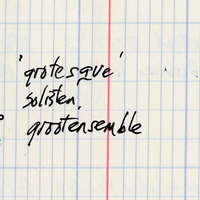 'grotesque'
solisten,
grootensemble